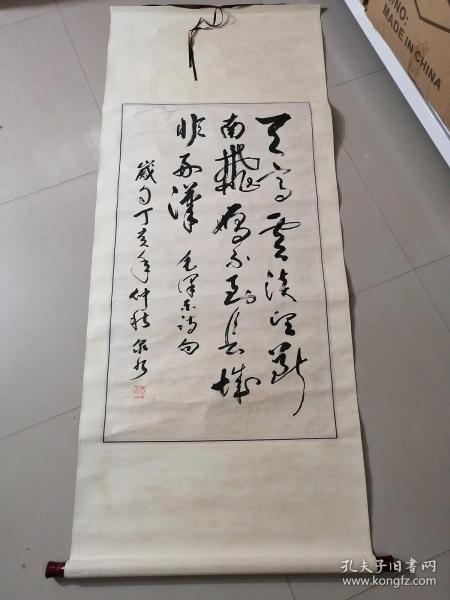 天高云淡望断
南飞雁不到长城
非好汉 毛泽东诗句
岁自丁亥年仲秋
NO:
MADE IN CHINA
孔夫子旧书网
www.kongfz.com